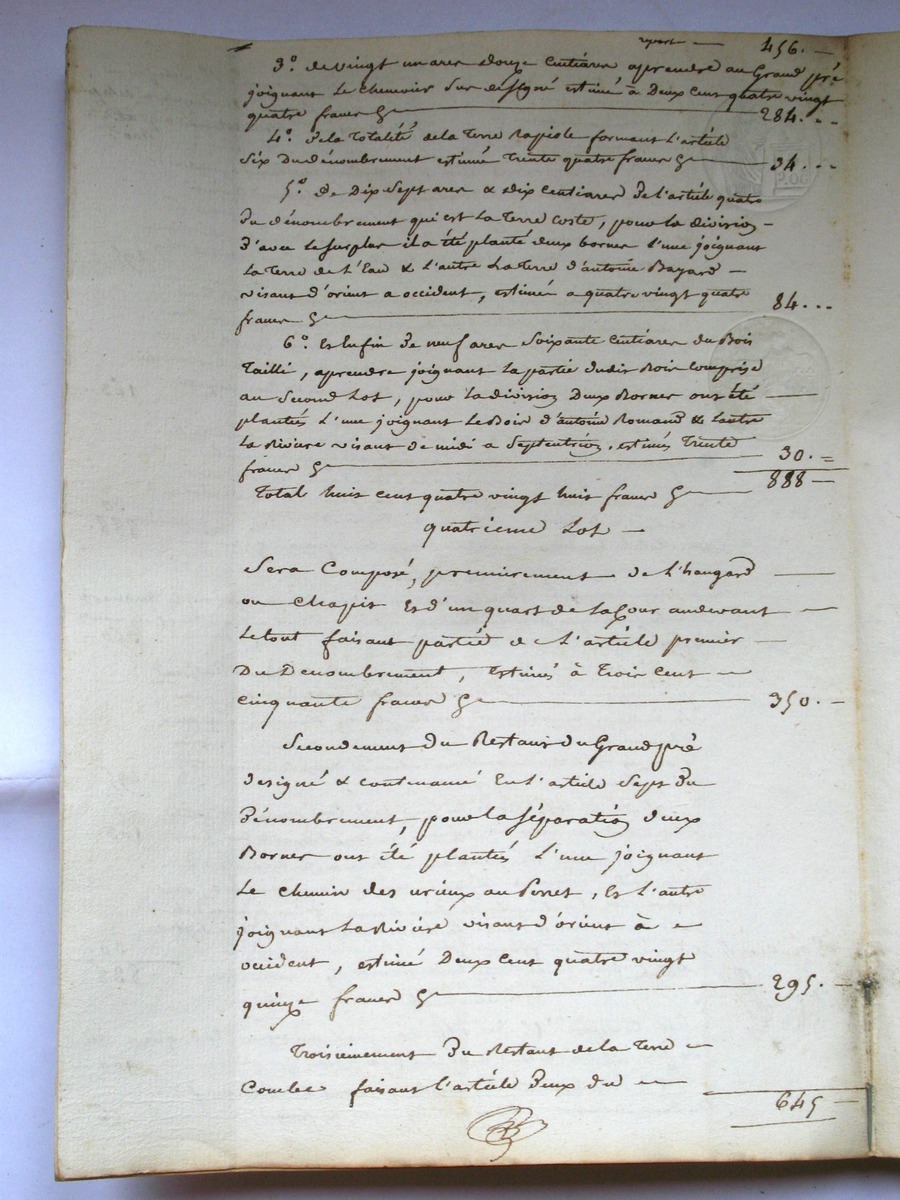 report — 456. —
3º. de vingt un ares douze Centiares aprendre au Grand pré
joignant Le chemin Sus désigné estimé à Deux Cent quatre vingt
quatre francs 284. ..
4º. De la Totalité de la Terre Rapiole formant L'article
Six Du dénombrement estimée Trente quatre francs 34 ...
5º. De Dix Sept ares & dix Centiares De l'article quatre
Du dénombrement qui est La Terre Coste, pour la division —
D'avec Le surplus il a été planté deux bornes l'une joignant
La Terre de L'Eau & L'autre La Terre d'antoine Bayard —
visant d'orient a occident, estimée a quatre vingt quatre
francs 84. ...
6º. Et Enfin De neuf ares Soixante Centiares du Bois
Taillé, aprendre joignant La partie dudit Bois Comprise
au Second Lot, pour la division Deux Bornes ont été —
plantés L'une joignant Le Bois d'antoine Romand & L'autre
La Riviere visant de midi a Septentrion, estimés Trente
francs 30. =
888 —
Total huit cent quatre vingt huit francs
quatrieme Lot —
Sera Composé, premierement de L'hangard —
ou Chapit Et d'un quart de La Cour audevant —
Le tout faisant partie de L'article premier —
Du Denombrement, Estimés à Trois Cent —
cinquante francs 350. —
Secondement du Restant du Grand pré
designé & contenancé En L'article Sept Du
Dénombrement, pour la séparation deux
Bornes ont été plantées L'une joignant
Le chemin des au , Et L'autre
joignant La Rivière visant d'orient à —
occident, estimé Deux Cent quatre vingt
quinze francs 295. —
Troisiemement Du Restant de la Terre —
Combe faisant l'article Deux du —
645 —